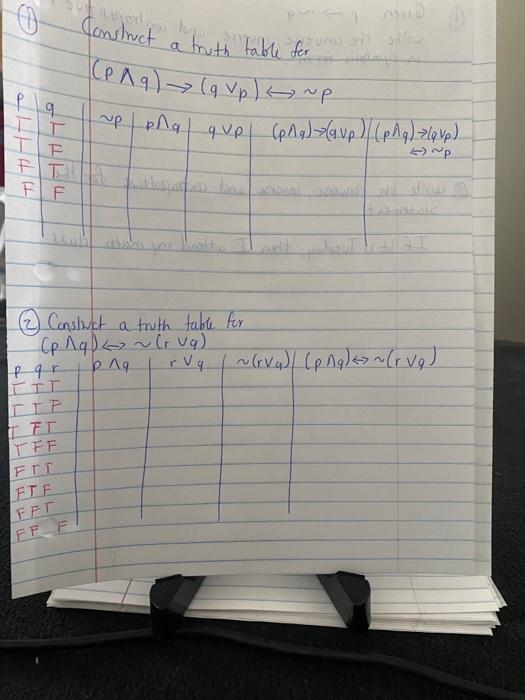 ① Construct a truth table for
(p ∧ q) → (q ∨ p) ↔ ~p
p q ~p p∧q q∨p (p∧q)→(q∨p) (p∧q)→(q∨p)
↔ ~p
T T
T F
F T
F F
② Construct a truth table for
(p ∧ q) ↔ ~(r ∨ q)
p q r p ∧ q r ∨ q ~(r∨q) (p ∧ q) ↔ ~(r ∨ q)
T T T
T T F
T F T
T F F
F T T
F T F
F F T
F F F